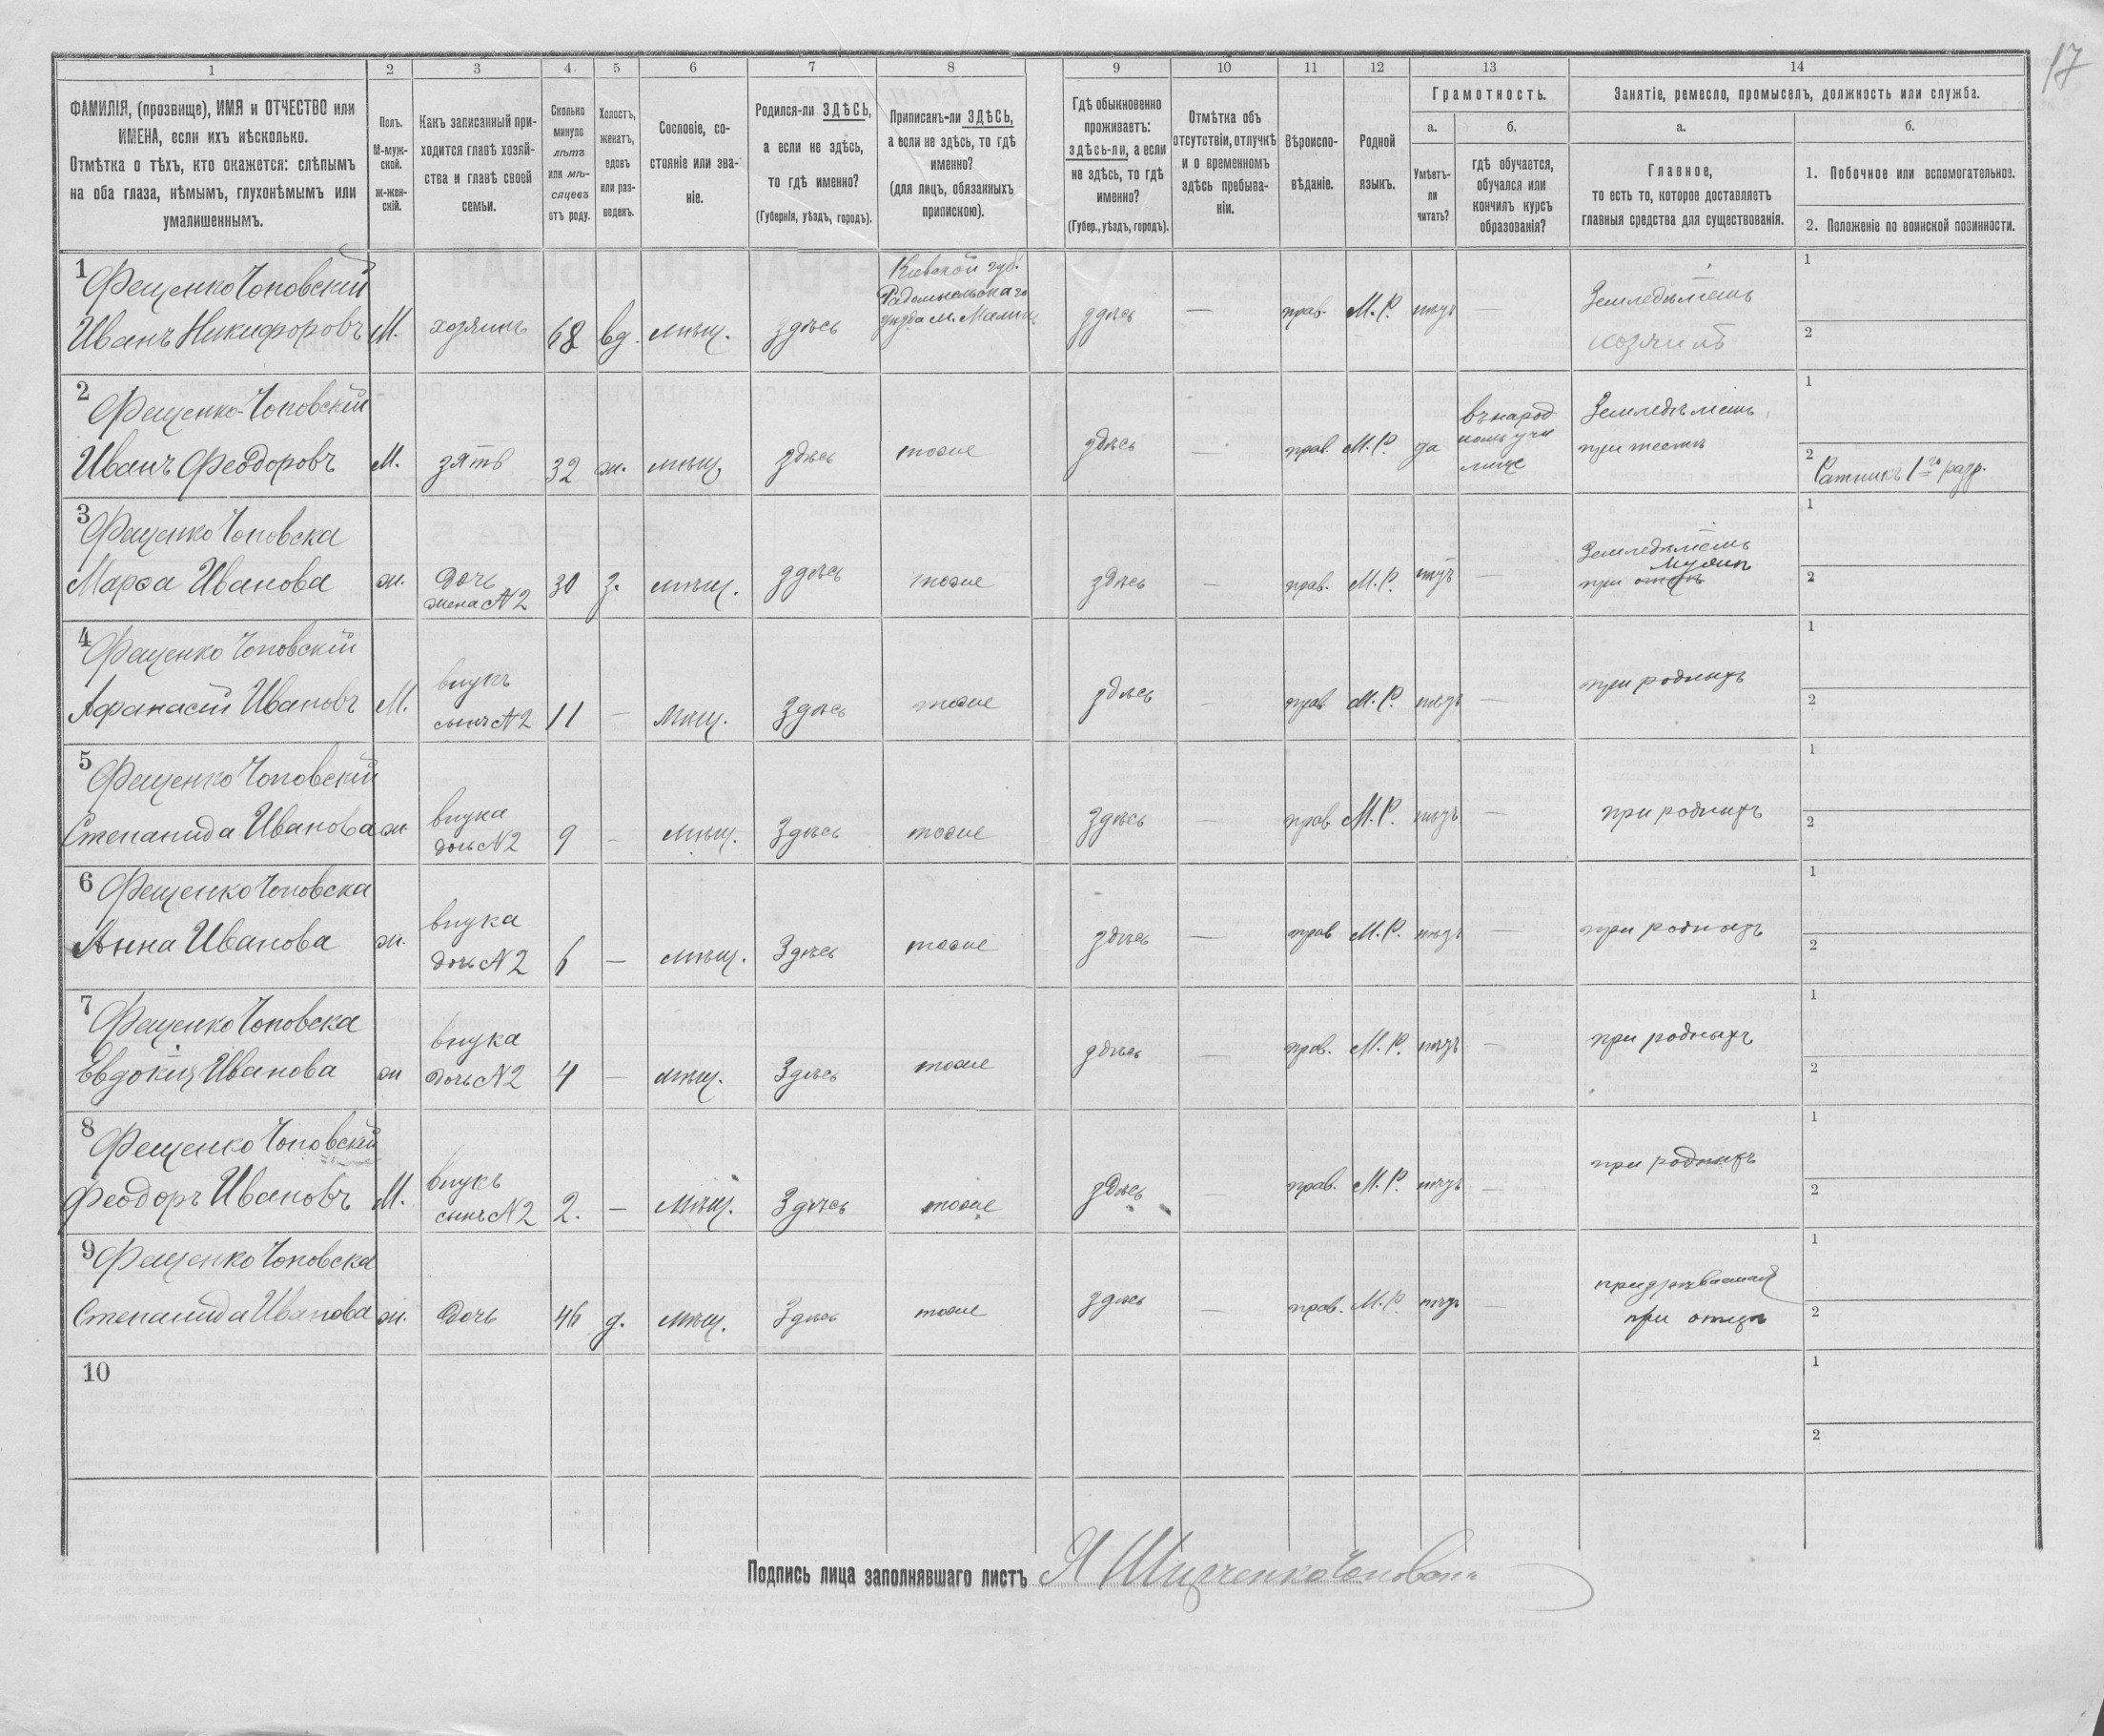 17
1 2 3 4. 5 6 7 8 9 10 11 12 13 14
ФАМИЛІЯ, (прозвище), ИМЯ и ОТЧЕСТВО или
ИМЕНА, если ихъ нѣсколько.
Отмѣтка о тѣхъ, кто окажется: слѣпымъ
на оба глаза, нѣмымъ, глухонѣмымъ или
умалишеннымъ.
Полъ.
М-муж-
ской.
ж-жен-
скій.
Какъ записанный при-
ходится главѣ хозяй-
ства и главѣ своей
семьи.
Сколько
минуло
лѣтъ
или мѣ-
сяцевъ
отъ роду.
Холостъ,
женатъ,
вдовъ
или раз-
веденъ.
Сословіе, со-
стояніе или зва-
ніе.
Родился-ли ЗДѢСЬ,
а если не здѣсь,
то гдѣ именно?
(Губернія, уѣздъ, городъ).
Приписанъ-ли ЗДѢСЬ,
а если не здѣсь, то гдѣ
именно?
(для лицъ, обязанныхъ
припискою).
Гдѣ обыкновенно
проживаетъ:
здѣсь-ли, а если
не здѣсь, то гдѣ
именно?
(Губер., уѣздъ, городъ).
Отмѣтка объ
отсутствіи, отлучкѣ
и о временномъ
здѣсь пребыва-
ніи.
Вѣроиспо-
вѣданіе.
Родной
языкъ.
Грамотность.
а.
Умѣетъ-
ли
читать?
б.
гдѣ обучается,
обучался или
кончилъ курсъ
образованія?
Занятіе, ремесло, промыселъ, должность или служба.
а.
Главное,
то есть то, которое доставляетъ
главныя средства для существованія.
б.
1. Побочное или вспомогательное.
2. Положеніе по воинской повинности.
1 Фещенко Чоповскій
Иванъ Никифоровъ М. хозяинъ 68 вд. мѣщ. здѣсь
Кіевской губ.
Радомысльскаго
уѣзда м. Малинъ
здѣсь — прав. М.Р. нѣтъ —
Земледѣлецъ
хозяинъ
1
2
2 Фещенко-Чоповскій
Иванъ Феодоровъ М. зять 32 ж. мѣщ. здѣсь тоже здѣсь — прав. М.Р. да
въ народ
номъ учи
лище
Земледѣлецъ
при тестѣ
1
2 Ратникъ 1го разр.
3 Фещенко Чоповска
Марѳа Иванова ж. дочь
жена N2
30 з. мѣщ. здѣсь тоже здѣсь — прав. М.Р. нѣтъ —
Земледѣлецъ
мужѣ
при отцѣ
1
2
4 Фещенко Чоповскій
Афанасій Ивановъ М. внукъ
сынъ N2
11 — мѣщ. Здѣсь тоже здѣсь — прав. М.Р. нѣтъ —
при родныхъ
1
2
5 Фещенко Чоповскій
Степанида Иванова ж. внука
дочь N2
9 — мѣщ. Здѣсь тоже Здѣсь — прав. М.Р. нѣтъ —
при родныхъ
1
2
6 Фещенко Чоповска
Анна Иванова ж. внука
дочь N2
6 — мѣщ. Здѣсь тоже здѣсь — прав М.Р. нѣтъ —
при родныхъ
1
2
7 Фещенко Чоповска
Евдокія Иванова ж внука
дочь N2
4 — мѣщ. Здѣсь тоже здѣсь — прав. М.Р. нѣтъ —
при родныхъ
1
2
8 Фещенко Чоповскій
Феодоръ Ивановъ М. внукъ
сынъ N2
2. — мѣщ. Здѣсь тоже здѣсь — прав. М.Р. нѣтъ —
при родныхъ
1
2
9 Фещенко Чоповска
Степанида Иванова ж. дочь 46 д. мѣщ. Здѣсь тоже здѣсь — прав. М.Р. нѣтъ —
при отцѣ
1
2
10
1
2
Подпись лица заполнявшаго листъ